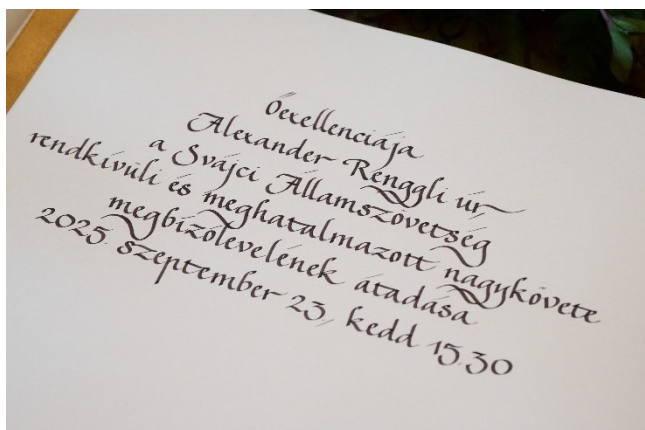 Őexellenciája
Alexander Renggli úr,
a Svájci Államszövetség
rendkívüli és meghatalmazott nagykövete
megbízólevelének átadása
2025. szeptember 23., kedd 15.30